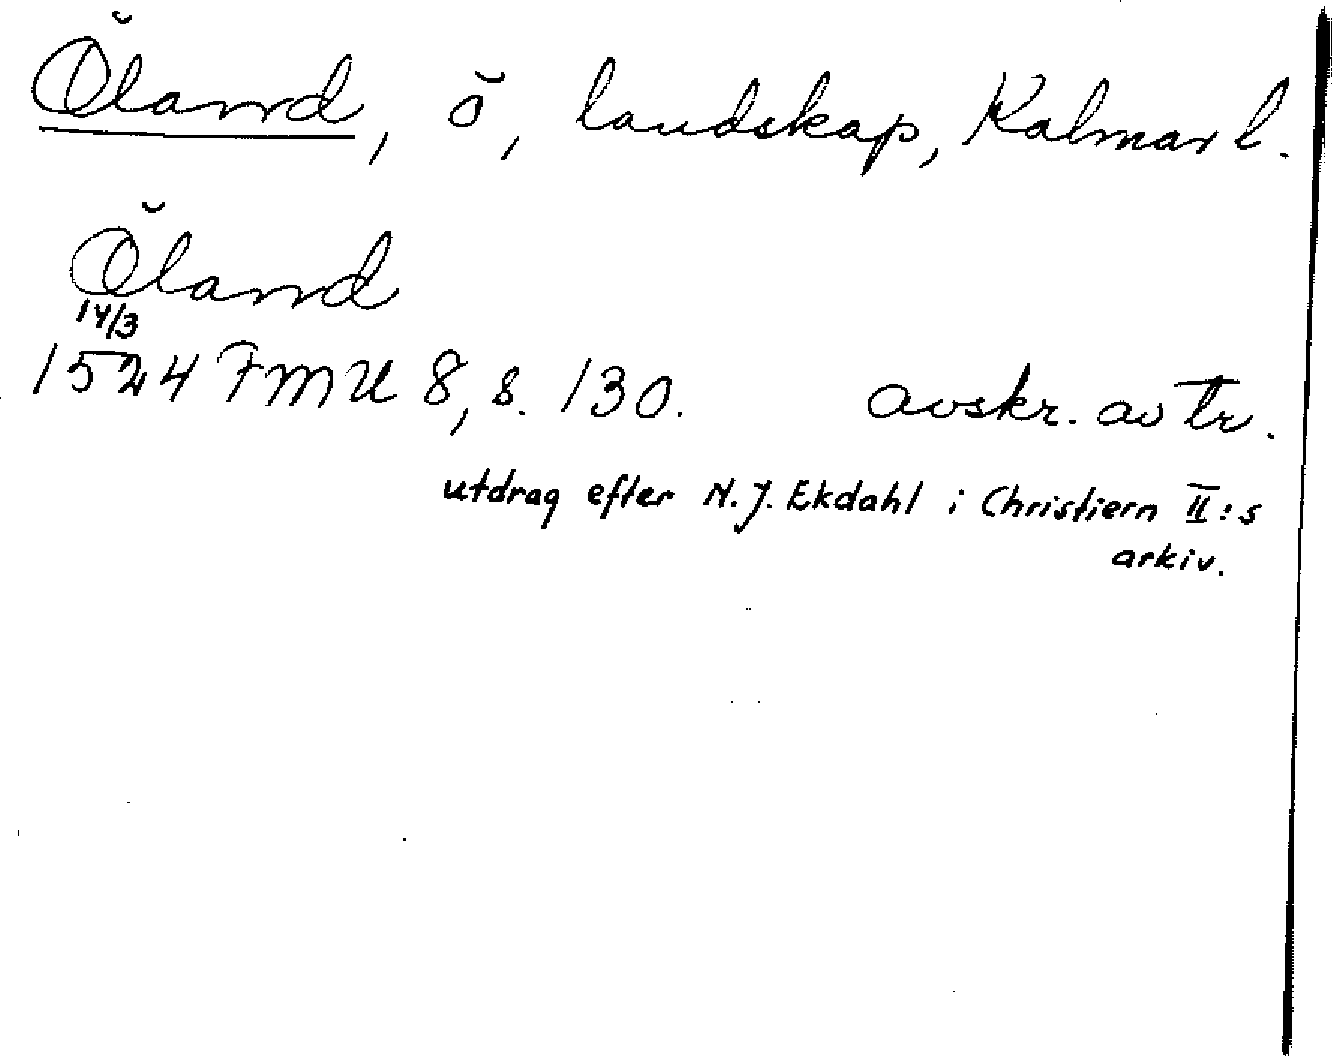 Öland, ö, landskap, Kalmar l.
Öland
14/3
1524 FMU 8, s. 130. avskr. av tr.
utdrag efter N. J. Ekdahl i Christiern II:s
arkiv.